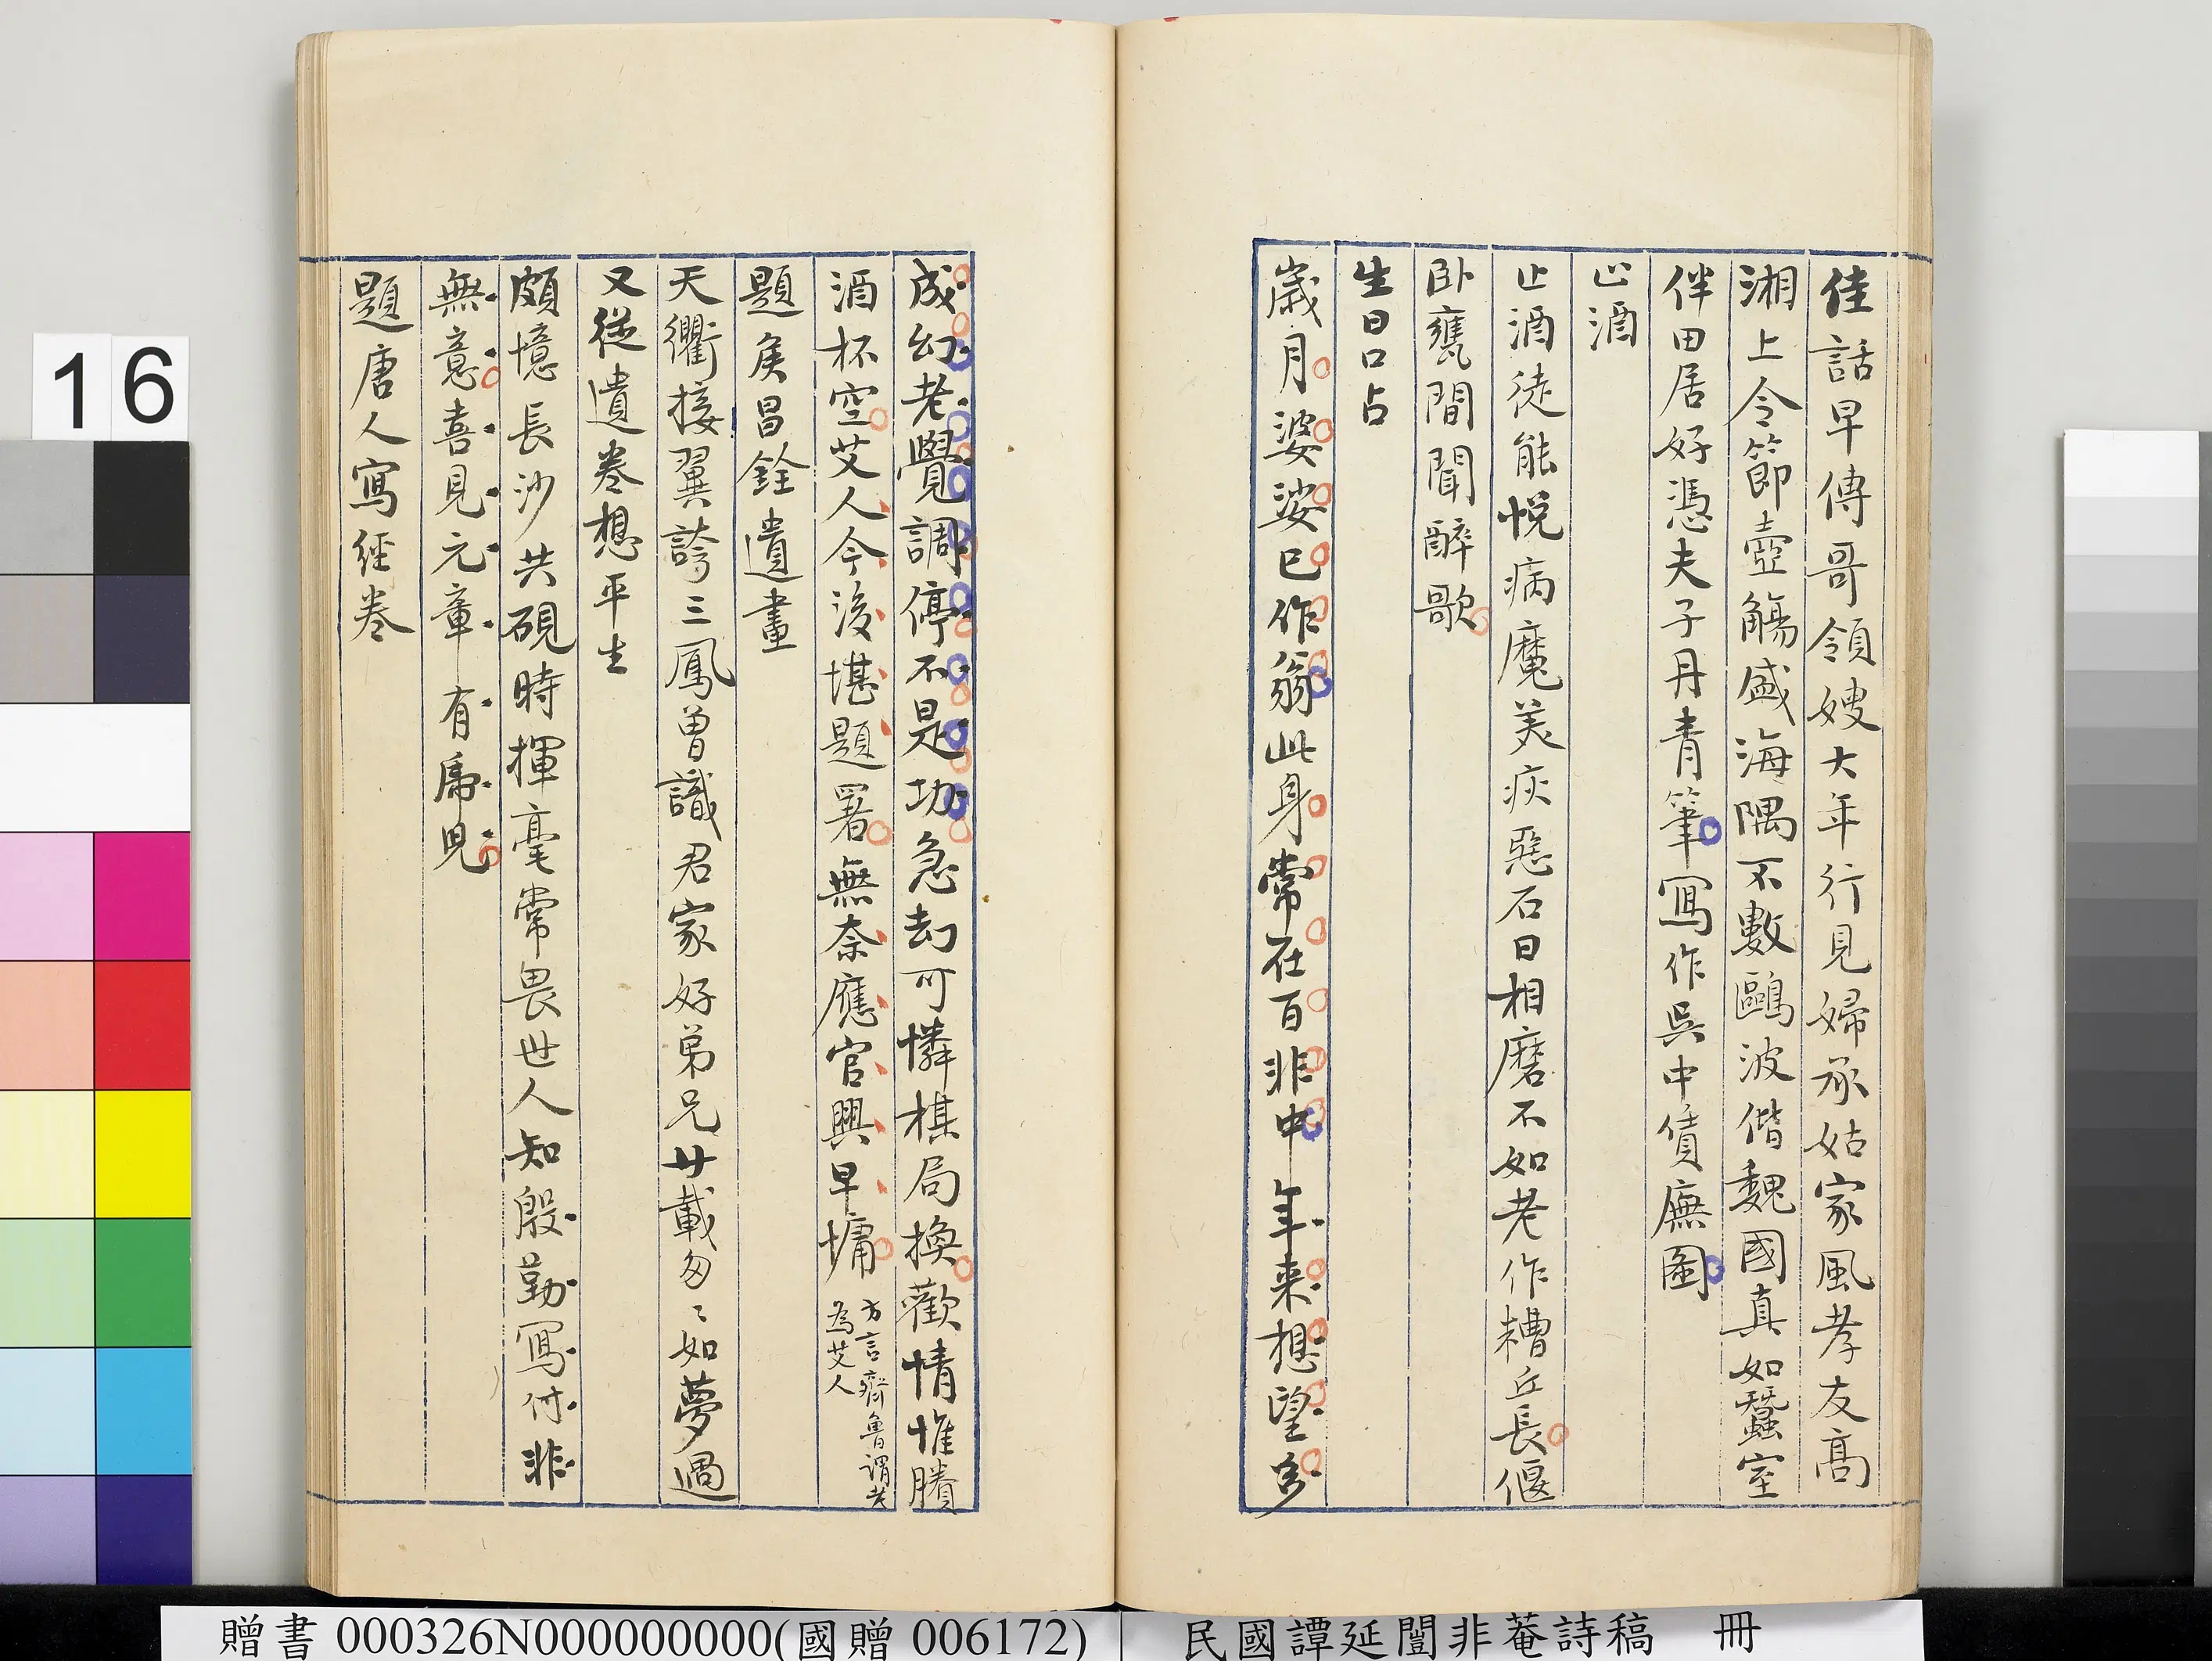 佳話早傳哥領嫂大年行見婦承姑家風孝友高
湘上令節壺觴盛海隅不數鷗波偕魏國真如蠶室
伴田居好憑夫子丹青筆寫作吳中賃廡圖
止酒
止酒徒能悅病魔美疢惡石日相磨不如老作糟丘長偃
卧甕間聞醉歌
生日口占
歲月婆娑已作翁此身常在百非中年来想望多
成幻老覺調停不是功急劫可憐棋局換歡情惟賸
酒杯空艾人今後堪題署無奈應官興早慵
方言齊魯謂老
為艾人
題矦昌銓遺畫
天衢接翼誇三鳳曾識君家好弟兄廿載匆〻如夢過
又從遺卷想平生
頗憶長沙共硯時揮毫常畏世人知殷勤寫付非
無意喜見元章有虎児
題唐人寫經卷
16
贈書 000326N000000000(國贈 006172)
民國譚延闓非菴詩稿 冊